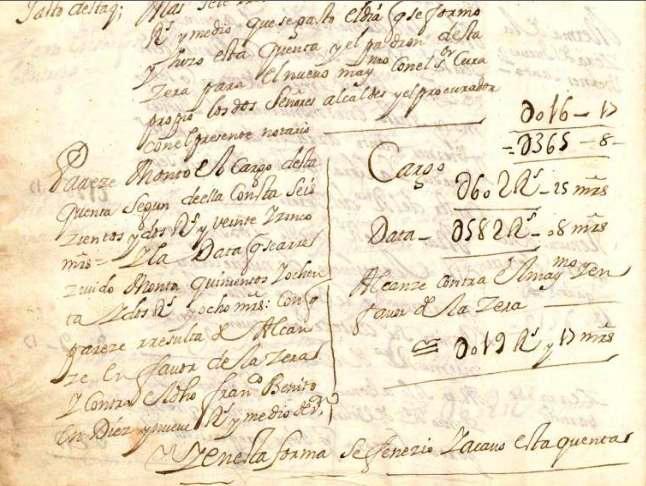 Mas seis
Rs y medio que se gasto el dia q se formo
y hizo esta Quenta y el padron desta
Zera para el nuevo maymo con el sor Cura
propio los dos Señores alcaldes y el procurador
con el presente notario
D016 - 17
= D365 - 8 -
Pareze Monto el Cargo desta
Quenta segun de ella Consta Seis
zientos y dos Rs y veinte Zinco
mrs = Y la Data q se a rre
zivido Monta quinientos Y ochen
ta Y dos Rs ocho mrs: Con q
pareze rresulta de Alcan
ze en favor de la Zera
Y Contra el dho franco Benito
en Diez y nueve Rs y medio
Cargo
D602 Rs - 25 mrs
Data - D582 Rs - 08 mrs
Alcanze contra el maymo Y en
favor de la Zera
D019 Rs y 17 mrs
Y en esta forma se fenezio Y acavo esta quenta